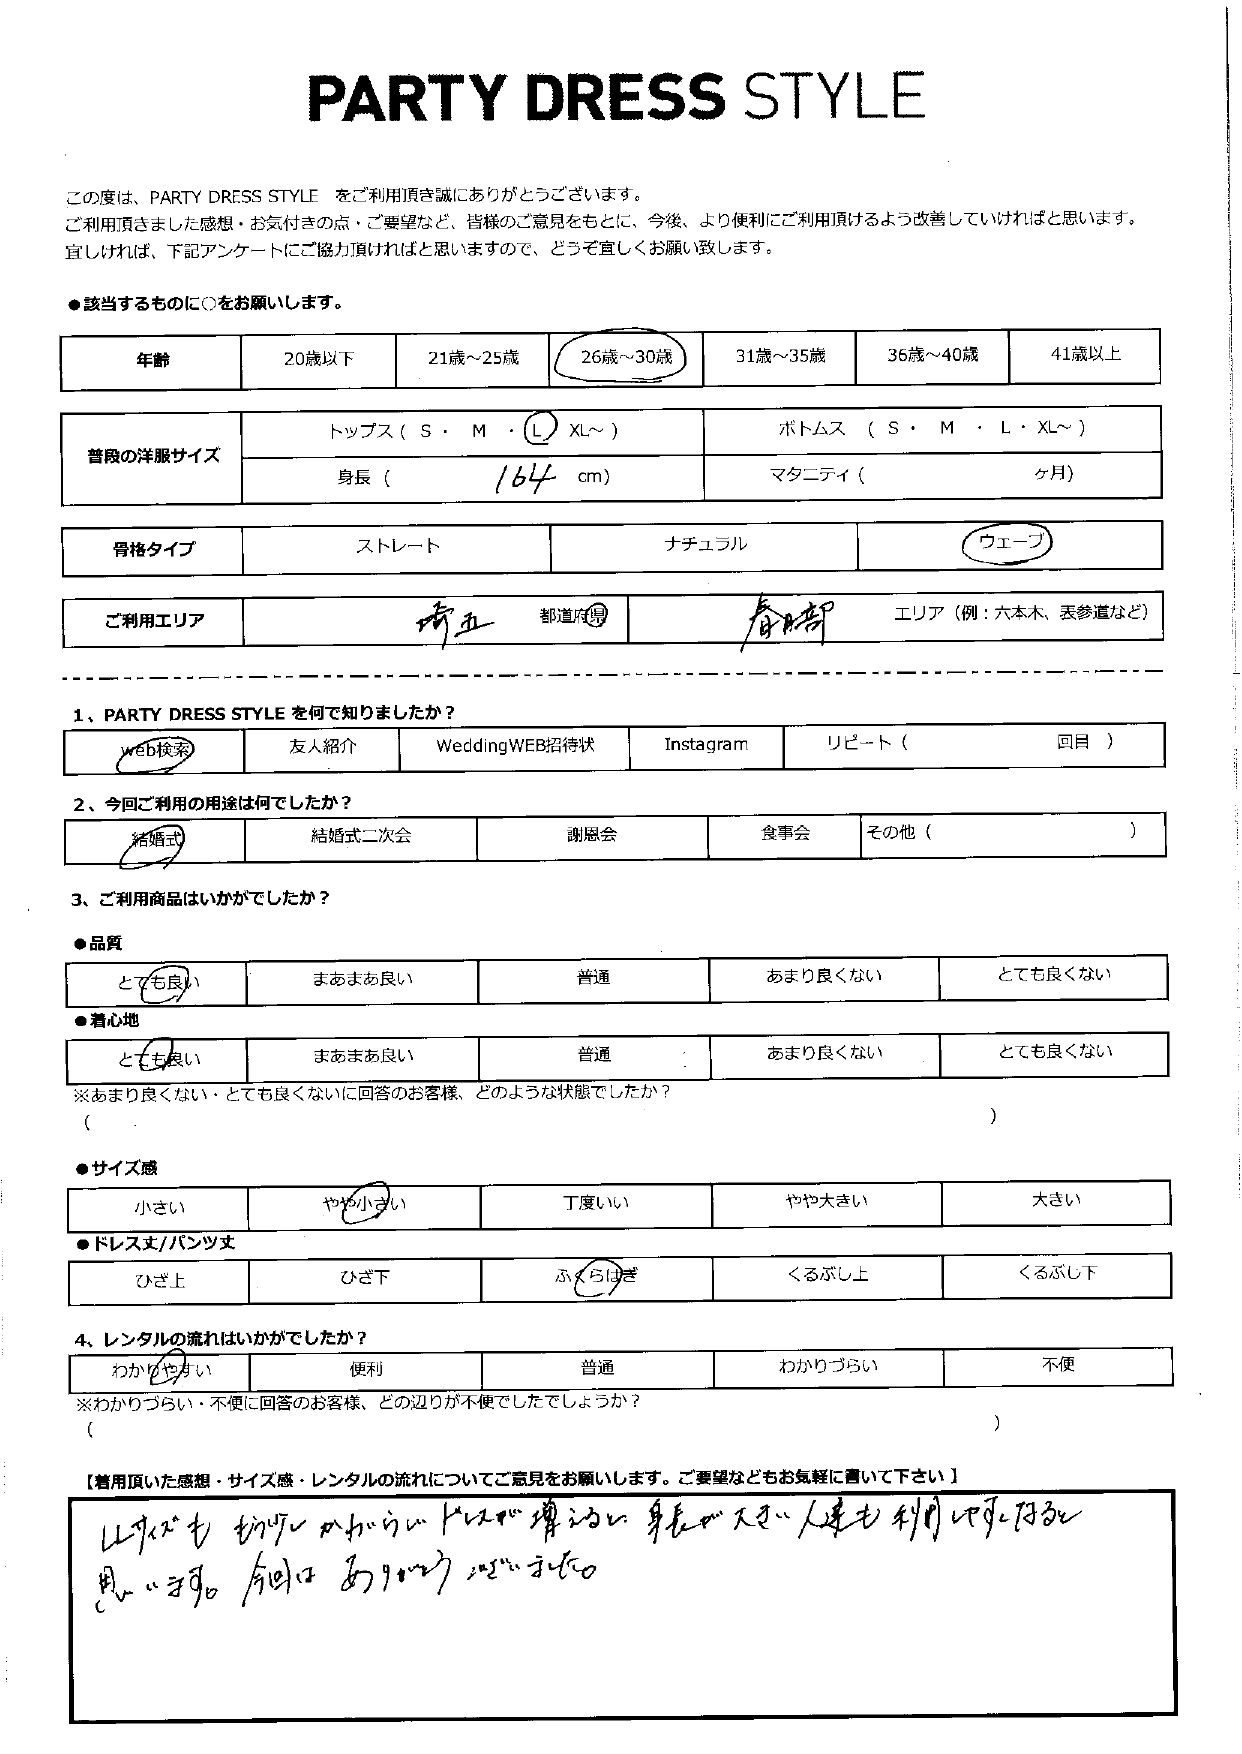 PARTY DRESS STYLE
この度は、PARTY DRESS STYLE をご利用頂き誠にありがとうございます。
ご利用頂きました感想・お気付きの点・ご要望など、皆様のご意見をもとに、今後、より便利にご利用頂けるよう改善していければと思います。
宜しければ、下記アンケートにご協力頂ければと思いますので、どうぞ宜しくお願い致します。
●該当するものに○をお願いします。
年齢 20歳以下 21歳～25歳 26歳～30歳 31歳～35歳 36歳～40歳 41歳以上
普段の洋服サイズ トップス ( S ・ M ・ L XL～ ) ボトムス ( S ・ M ・ L ・ XL～ )
身長 ( 164 cm) マタニティ ( ヶ月)
骨格タイプ ストレート ナチュラル ウェーブ
ご利用エリア 埼玉 都道府県 春日部 エリア（例：六本木、表参道など）
1、PARTY DRESS STYLE を何で知りましたか？
web検索 友人紹介 WeddingWEB招待状 Instagram リピート ( 回目 )
2、今回ご利用の用途は何でしたか？
結婚式 結婚式二次会 謝恩会 食事会 その他 ( )
3、ご利用商品はいかがでしたか？
●品質
とても良い まあまあ良い 普通 あまり良くない とても良くない
●着心地
とても良い まあまあ良い 普通 あまり良くない とても良くない
※あまり良くない・とても良くないに回答のお客様、どのような状態でしたか？
( )
●サイズ感
小さい やや小さい 丁度いい やや大きい 大きい
●ドレス丈/パンツ丈
ひざ上 ひざ下 ふくらはぎ くるぶし上 くるぶし下
4、レンタルの流れはいかがでしたか？
わかりやすい 便利 普通 わかりづらい 不便
※わかりづらい・不便に回答のお客様、どの辺りが不便でしたでしょうか？
( )
【着用頂いた感想・サイズ感・レンタルの流れについてご意見をお願いします。ご要望などもお気軽に書いて下さい】
LLサイズも もう少し かわいい ドレスが 増えると、身長が 大きい 人達も 利用しやすくなると
思います。今回は ありがとう ございました。